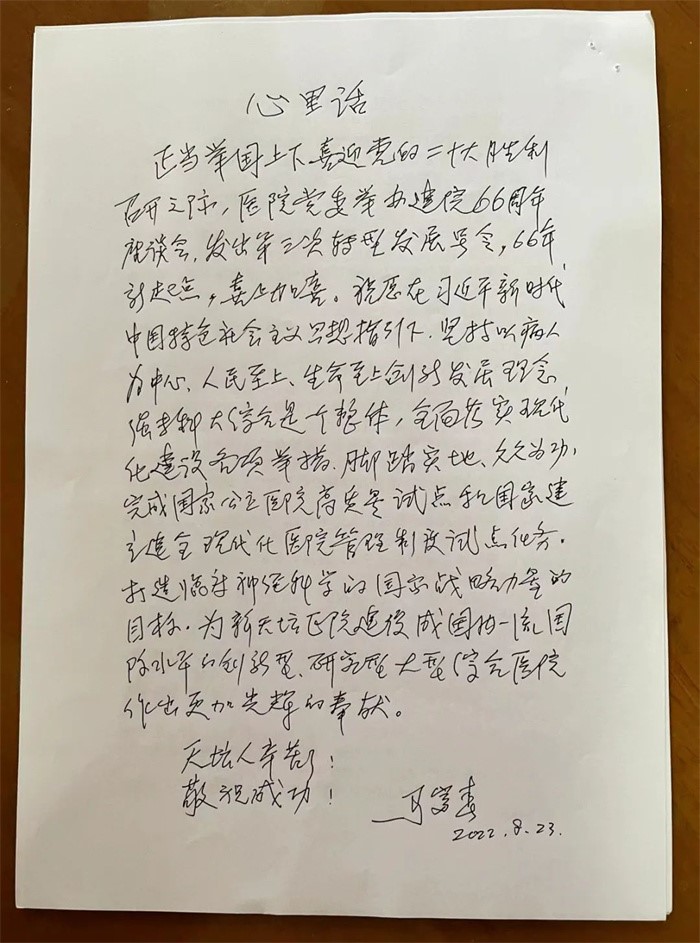 心里话
正当举国上下喜迎党的二十大胜利
召开之际，医院党委举办建院66周年
座谈会，发出第三次转型发展号令，66年
新起点，喜上加喜。祝愿在习近平新时代
中国特色社会主义思想指引下，坚持以病人
为中心、人民至上、生命至上创新发展理念，
强专科大综合是一个整体，全面落实现代
化建设各项举措，脚踏实地、久久为功，
完成国家公立医院高质量试点和国家建
立健全现代化医院管理制度试点任务。
打造临床神经科学的国家战略力量的
目标。为新天坛医院建设成国内一流国
际水平的创新型、研究型大型综合医院
作出更加光辉的奉献。
天坛人辛苦了！
敬祝成功！
2022.8.23.